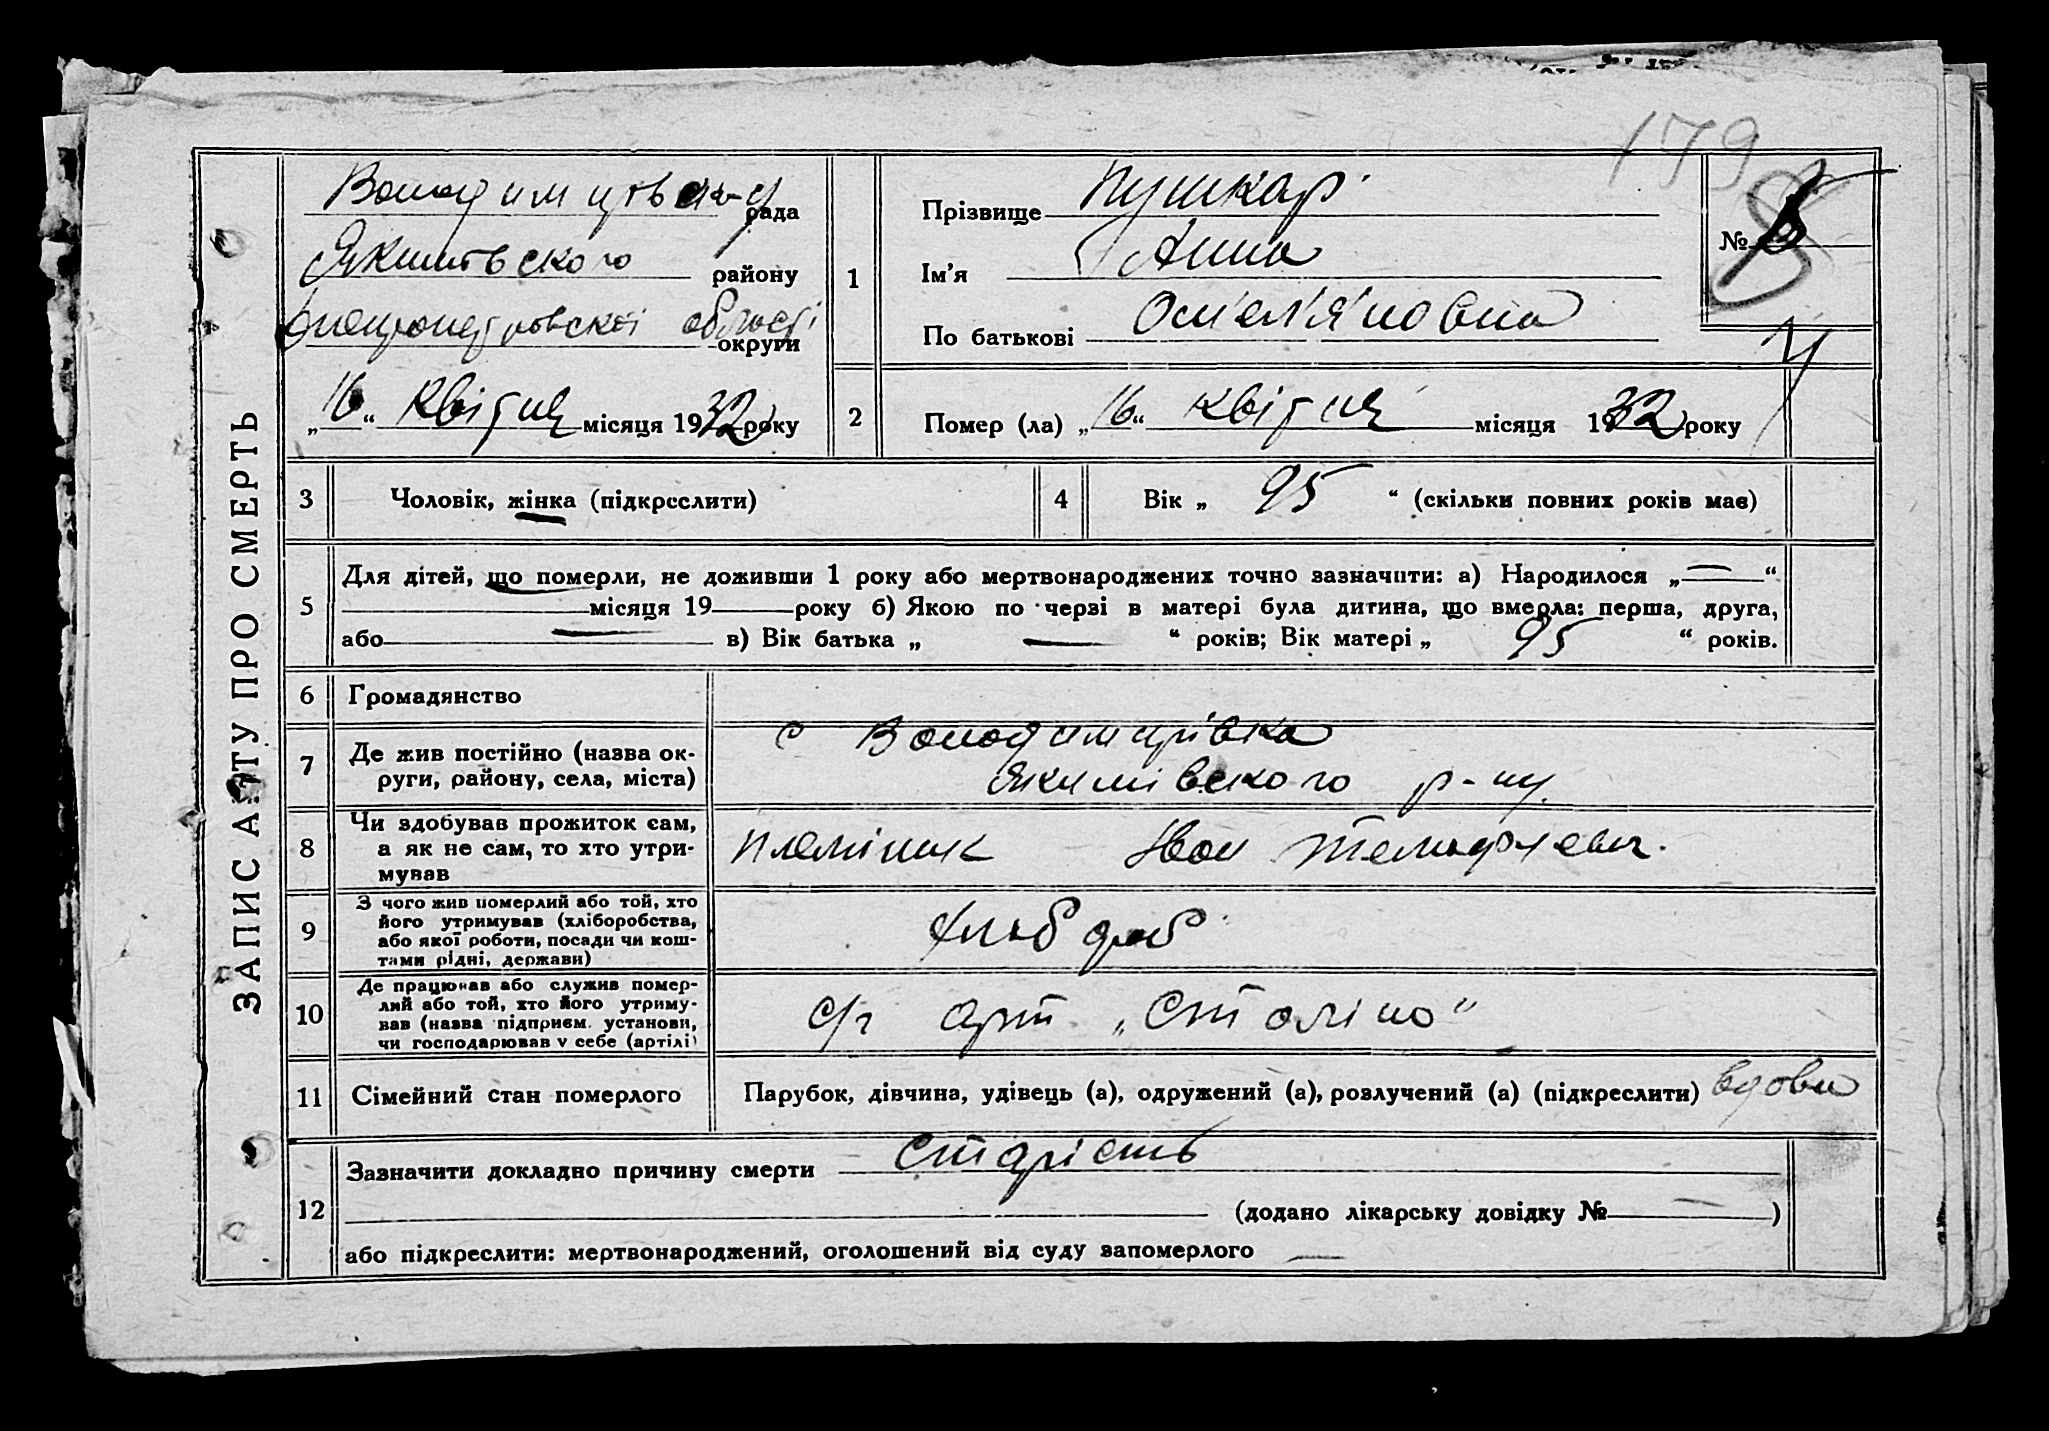 179
ЗАПИС АКТУ ПРО СМЕРТЬ
рада
району
Дніпропетровскої області
округи
„16“ Квітня місяця 1932 року
1
Прізвище Пушкар
Ім’я Анна
По батькові Омел'яновна
№
2
Помер (ла) „16“ Квітня місяця 1932 року
3 Чоловік, жінка (підкреслити)
4 Вік „ 95 “ (скільки повних років має)
5 Для дітей, що померли, не доживши 1 року або мертвонароджених точно зазначити: а) Народилося „ — “
місяця 19 року б) Якою по черзі в матері була дитина, що вмерла: перша, друга,
або — в) Вік батька „ — “ років; Вік матері „ 95 “ років.
6 Громадянство
7 Де жив постійно (назва ок-
руги, району, села, міста)
с Володимирівка
Якимівского р-ну
8 Чи здобував прожиток сам,
а як не сам, то хто утри-
мував
племіник Іван
9 З чого жив померлий або той, хто
його утримував (хліборобства,
або якої роботи, посади чи кош-
тами рідні, держави)
10 Де працював або служив помер-
лий або той, хто його утриму-
вав (назва підприєм. установи,
чи господарював у себе (артілі)
с/г арт „Сталіна“
11 Сімейний стан померлого
Парубок, дівчина, удівець (а), одружений (а), розлучений (а) (підкреслити) вдова
12 Зазначити докладно причину смерти старість
(додано лікарську довідку № — )
або підкреслити: мертвонароджений, оголошений від суду запомерлого —